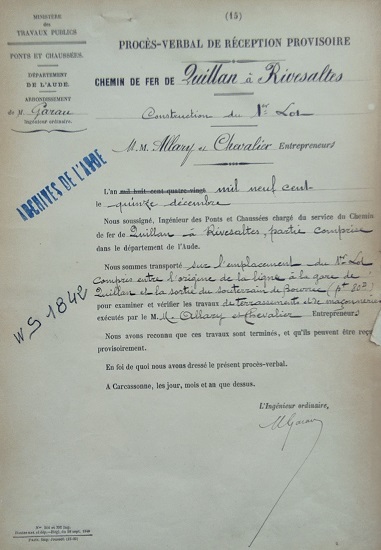 (15)
MINISTÈRE
des
TRAVAUX PUBLICS
PONTS ET CHAUSSÉES.
DÉPARTEMENT
DE L'AUDE.
ARRONDISSEMENT
de M Garau
Ingénieur ordinaire.
PROCÈS-VERBAL DE RÉCEPTION PROVISOIRE
CHEMIN DE FER DE Quillan à Rivesaltes
Construction du 1er Lot
M.M. Allary et Chevalier Entrepreneurs
ARCHIVES DE L'AUDE
WS 1842
L'an mil huit cent quatre-vingt mil neuf cent
le quinze décembre
Nous soussigné, Ingénieur des Ponts et Chaussées chargé du service du Chemin
de fer de Quillan à Rivesaltes, partie comprise
dans le département de l'Aude.
Nous sommes transporté sur l'emplacement du 1er Lot
Compris entre l'origine de la ligne à la gare de
Quillan et la sortie du souterrain de
pour examiner et vérifier les travaux de terrassements et de maçonneries
exécutés par le M M. Allary et Chevalier Entrepreneurs
Nous avons reconnu que ces travaux sont terminés, et qu'ils peuvent être reçus
provisoirement.
En foi de quoi nous avons dressé le présent procès-verbal.
A Carcassonne, les jour, mois et an que dessus.
L'Ingénieur ordinaire,
MGarau